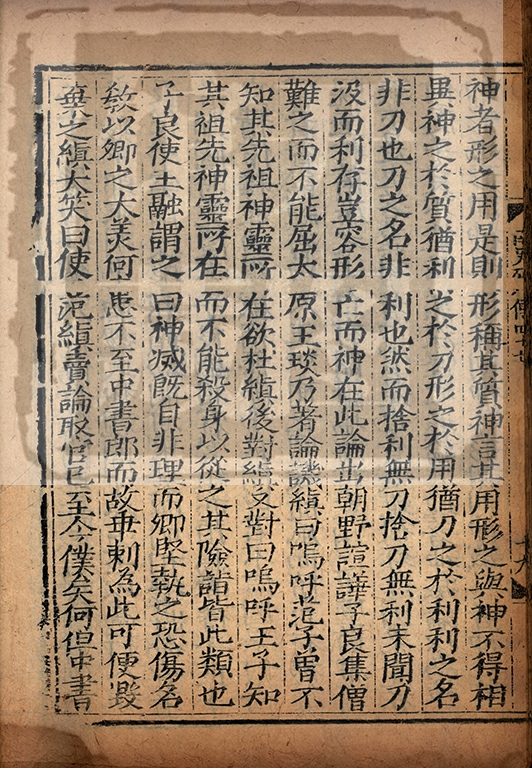 神者形之用是則形稱其質神言其用形之與神不得相
異神之於質猶利之於刀形之於用猶刀之於利利之名
非刀也刀之名非利也然而捨利無刀捨刀無利未聞刀
沒而利存豈容形亡而神在此論出朝野諠譁子良集僧
難之而不能屈太原王琰乃著論譏縝曰嗚呼范子曾不
知其先祖神靈所在欲杜縝後對縝又對曰嗚呼王子知
其祖先神靈所在而不能殺身以從之其險詣皆此類也
子良使王融謂之曰神滅既自非理而卿堅執之恐傷名
敎以卿之大美何患不至中書郎而故乖剌為此可便毀
棄之縝大笑曰使范縝賣論取官已至令僕矣何但中書